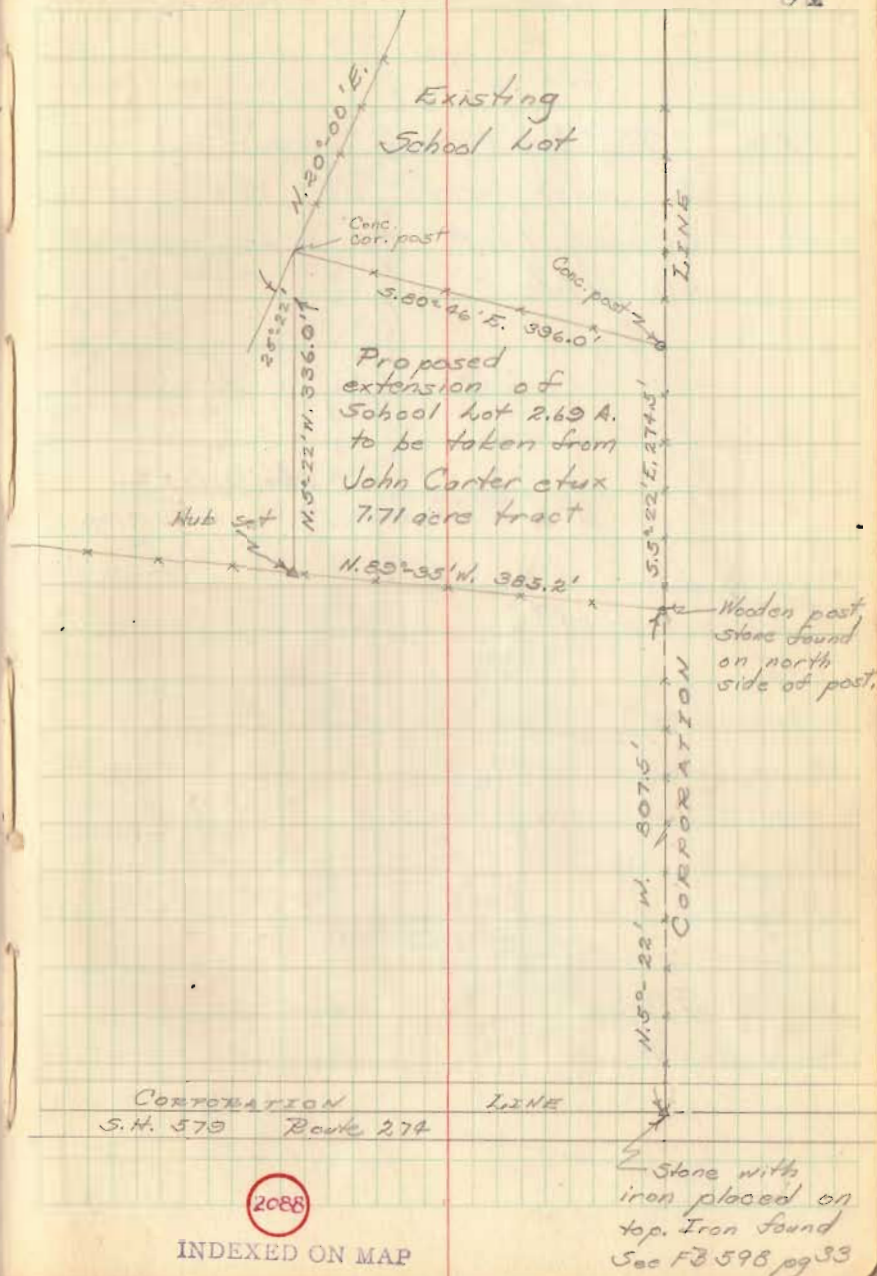 Existing
School Lot
N. 20°-00' E.
LINE
Conc.
cor. post
Conc. post
S. 80°-46' E. 396.0'
25°-22'
N. 5°-22' W. 336.0'
Proposed
extension of
School Lot 2.69 A.
to be taken from
John Carter etux
7.71 acre tract
S. 5°-22' E. 274.5'
Hub set
N. 89°-35' W. 385.2'
Wooden post,
stone found
on north
side of post.
N. 5°-22' W. 807.5'
CORPORATION
CORPORATION LINE
S.H. 579 Route 274
Stone with
iron placed on
top. Iron found
See FB 598 pg 33
2088
INDEXED ON MAP